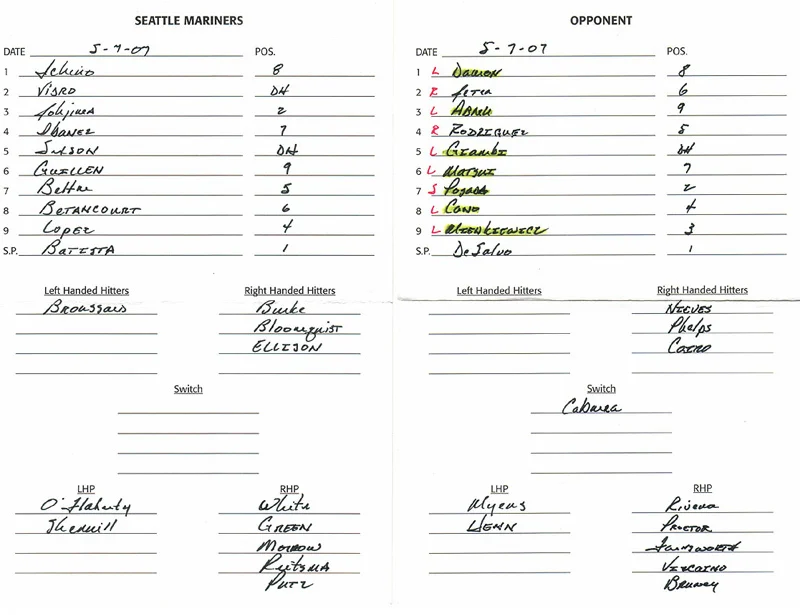 SEATTLE MARINERS
DATE 5-7-07 POS.
1 Ichiro 8
2 Vidro DH
3 Johjima 2
4 IbANEZ 7
5 SEXSON DH
6 GUILLEN 9
7 Beltre 5
8 BETANCOURT 6
9 LOPEZ 4
S.P. BATISTA 1
Left Handed Hitters
Broussard
Right Handed Hitters
Burke
Bloomquist
ELLISON
Switch
LHP
O'Flaherty
Sherrill
RHP
White
GREEN
MORROW
REITSMA
PUTZ
OPPONENT
DATE 5-7-07 POS.
1 L DAMON 8
2 R Jeter 6
3 L ABREU 9
4 R RODRIGUEZ 5
5 L GIAMBI DH
6 L MATSUI 7
7 S POSADA 2
8 L CANO 4
9 L MIENKIEWICZ 3
S.P. DeSalvo 1
Left Handed Hitters
Right Handed Hitters
NIEVES
Phelps
CAIRO
Switch
Cabrera
LHP
Myers
HENN
RHP
Rivera
PROCTOR
FARNSWORTH
VIZCAINO
Bruney